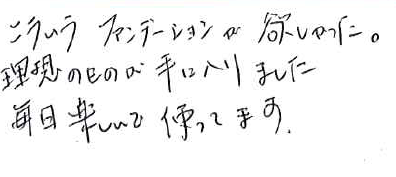 こういう ファンデーションが 欲しかった。
理想のものが 手に入りました
毎日楽しんで 使ってます.